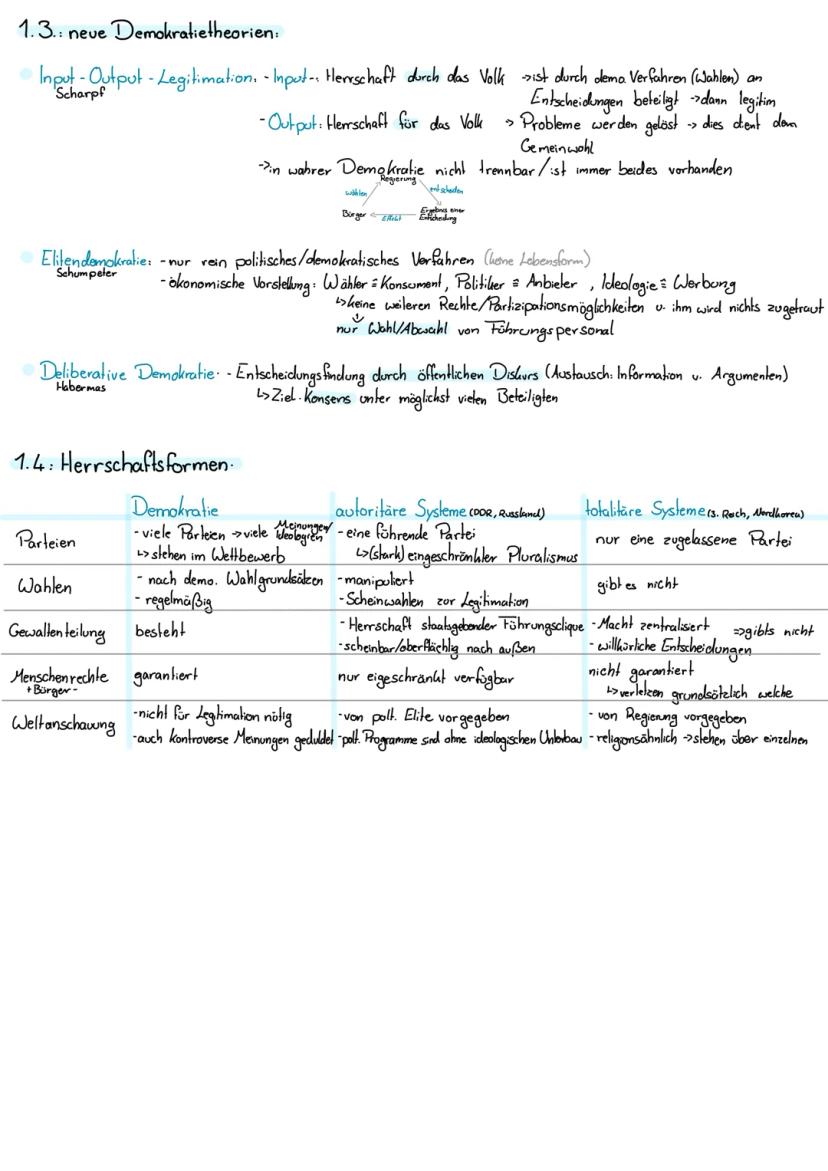 1.3.: neue Demokratietheorien:
Input-Output-Legitimation: - Input-: Herrschaft durch das Volk → ist durch demo. Verfahren (Wahlen) an
Scharpf
Entscheidungen beteiligt → dann legitim
- Output: Herrschaft für das Volk → Probleme werden gelöst → dies dient dem
Gemeinwohl
→ in wahrer Demokratie nicht trennbar/ist immer beides vorhanden
Regierung
wählen
entscheiden
Bürger
Effekt
Ergebnis einer
Entscheidung
Elitendemokratie: - nur rein politisches/demokratisches Verfahren (keine Lebensform)
Schumpeter
- ökonomische Vorstellung: Wähler ≙ Konsument, Politiker ≙ Anbieter, Ideologie ≙ Werbung
↳ keine weiteren Rechte/Partizipationsmöglichkeiten u. ihm wird nichts zugetraut
↓
nur Wahl/Abwahl von Führungspersonal
Deliberative Demokratie: - Entscheidungsfindung durch öffentlichen Diskurs (Austausch: Information u. Argumenten)
Habermas
↳ Ziel: Konsens unter möglichst vielen Beteiligten
1.4: Herrschaftsformen:
Demokratie autoritäre Systeme (DDR, Russland) totalitäre Systeme (3. Reich, Nordkorea)
Parteien
- viele Parteien → viele Meinungen/Ideologien
↳ stehen im Wettbewerb
- eine führende Partei
↳ (stark) eingeschränkter Pluralismus
nur eine zugelassene Partei
Wahlen
- nach demo. Wahlgrundsätzen
- regelmäßig
- manipuliert
- Scheinwahlen zur Legitimation
gibt es nicht
Gewaltenteilung
besteht
- Herrschaft staatsgebender Führungsclique
- scheinbar/oberflächlig nach außen
- Macht zentralisiert ⇒ gibts nicht
- willkürliche Entscheidungen
Menschenrechte
+ Bürger-
garantiert
nur eigeschränkt verfügbar
nicht garantiert
↳ verletzen grundsätzlich welche
Weltanschauung
- nicht für Legitimation nötig
- auch kontroverse Meinungen geduldet
- von polt. Elite vorgegeben
- polt. Programme sind ohne ideologischen Unterbau
- von Regierung vorgegeben
- religionsähnlich → stehen über einzelnen